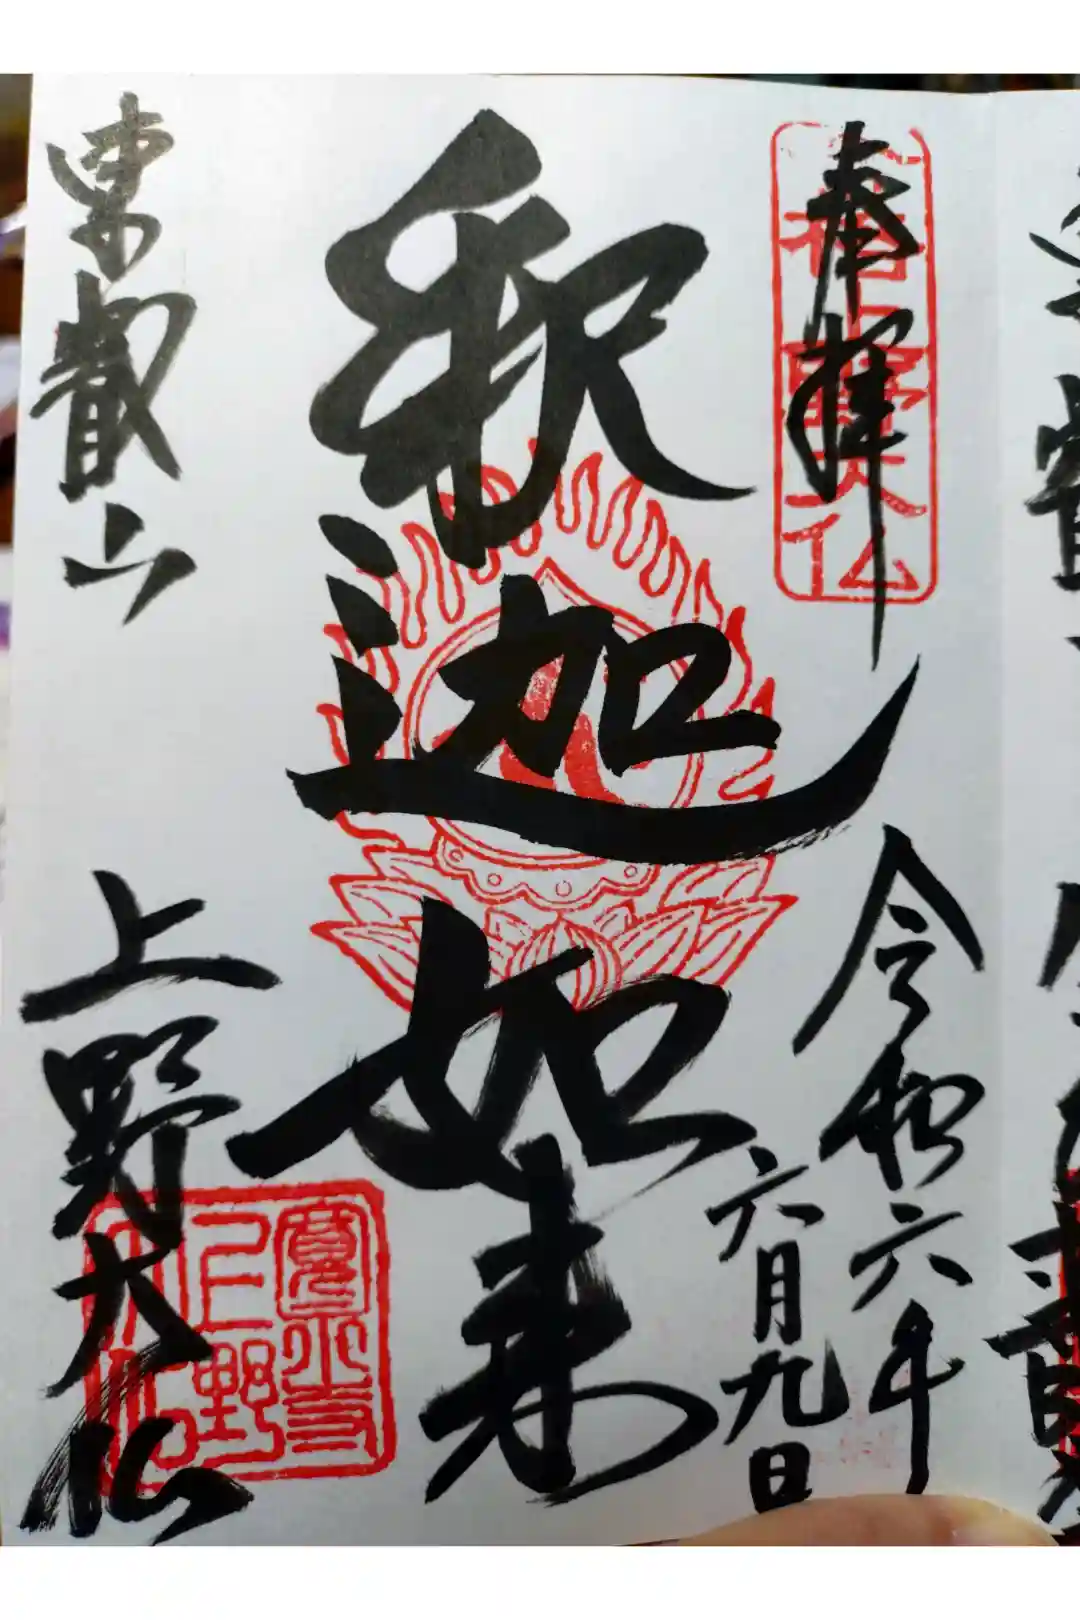 奉拝
上野大仏
令和六年
六月九日
釈迦如来
東叡山
上野大仏
寛永寺
上野
大仏